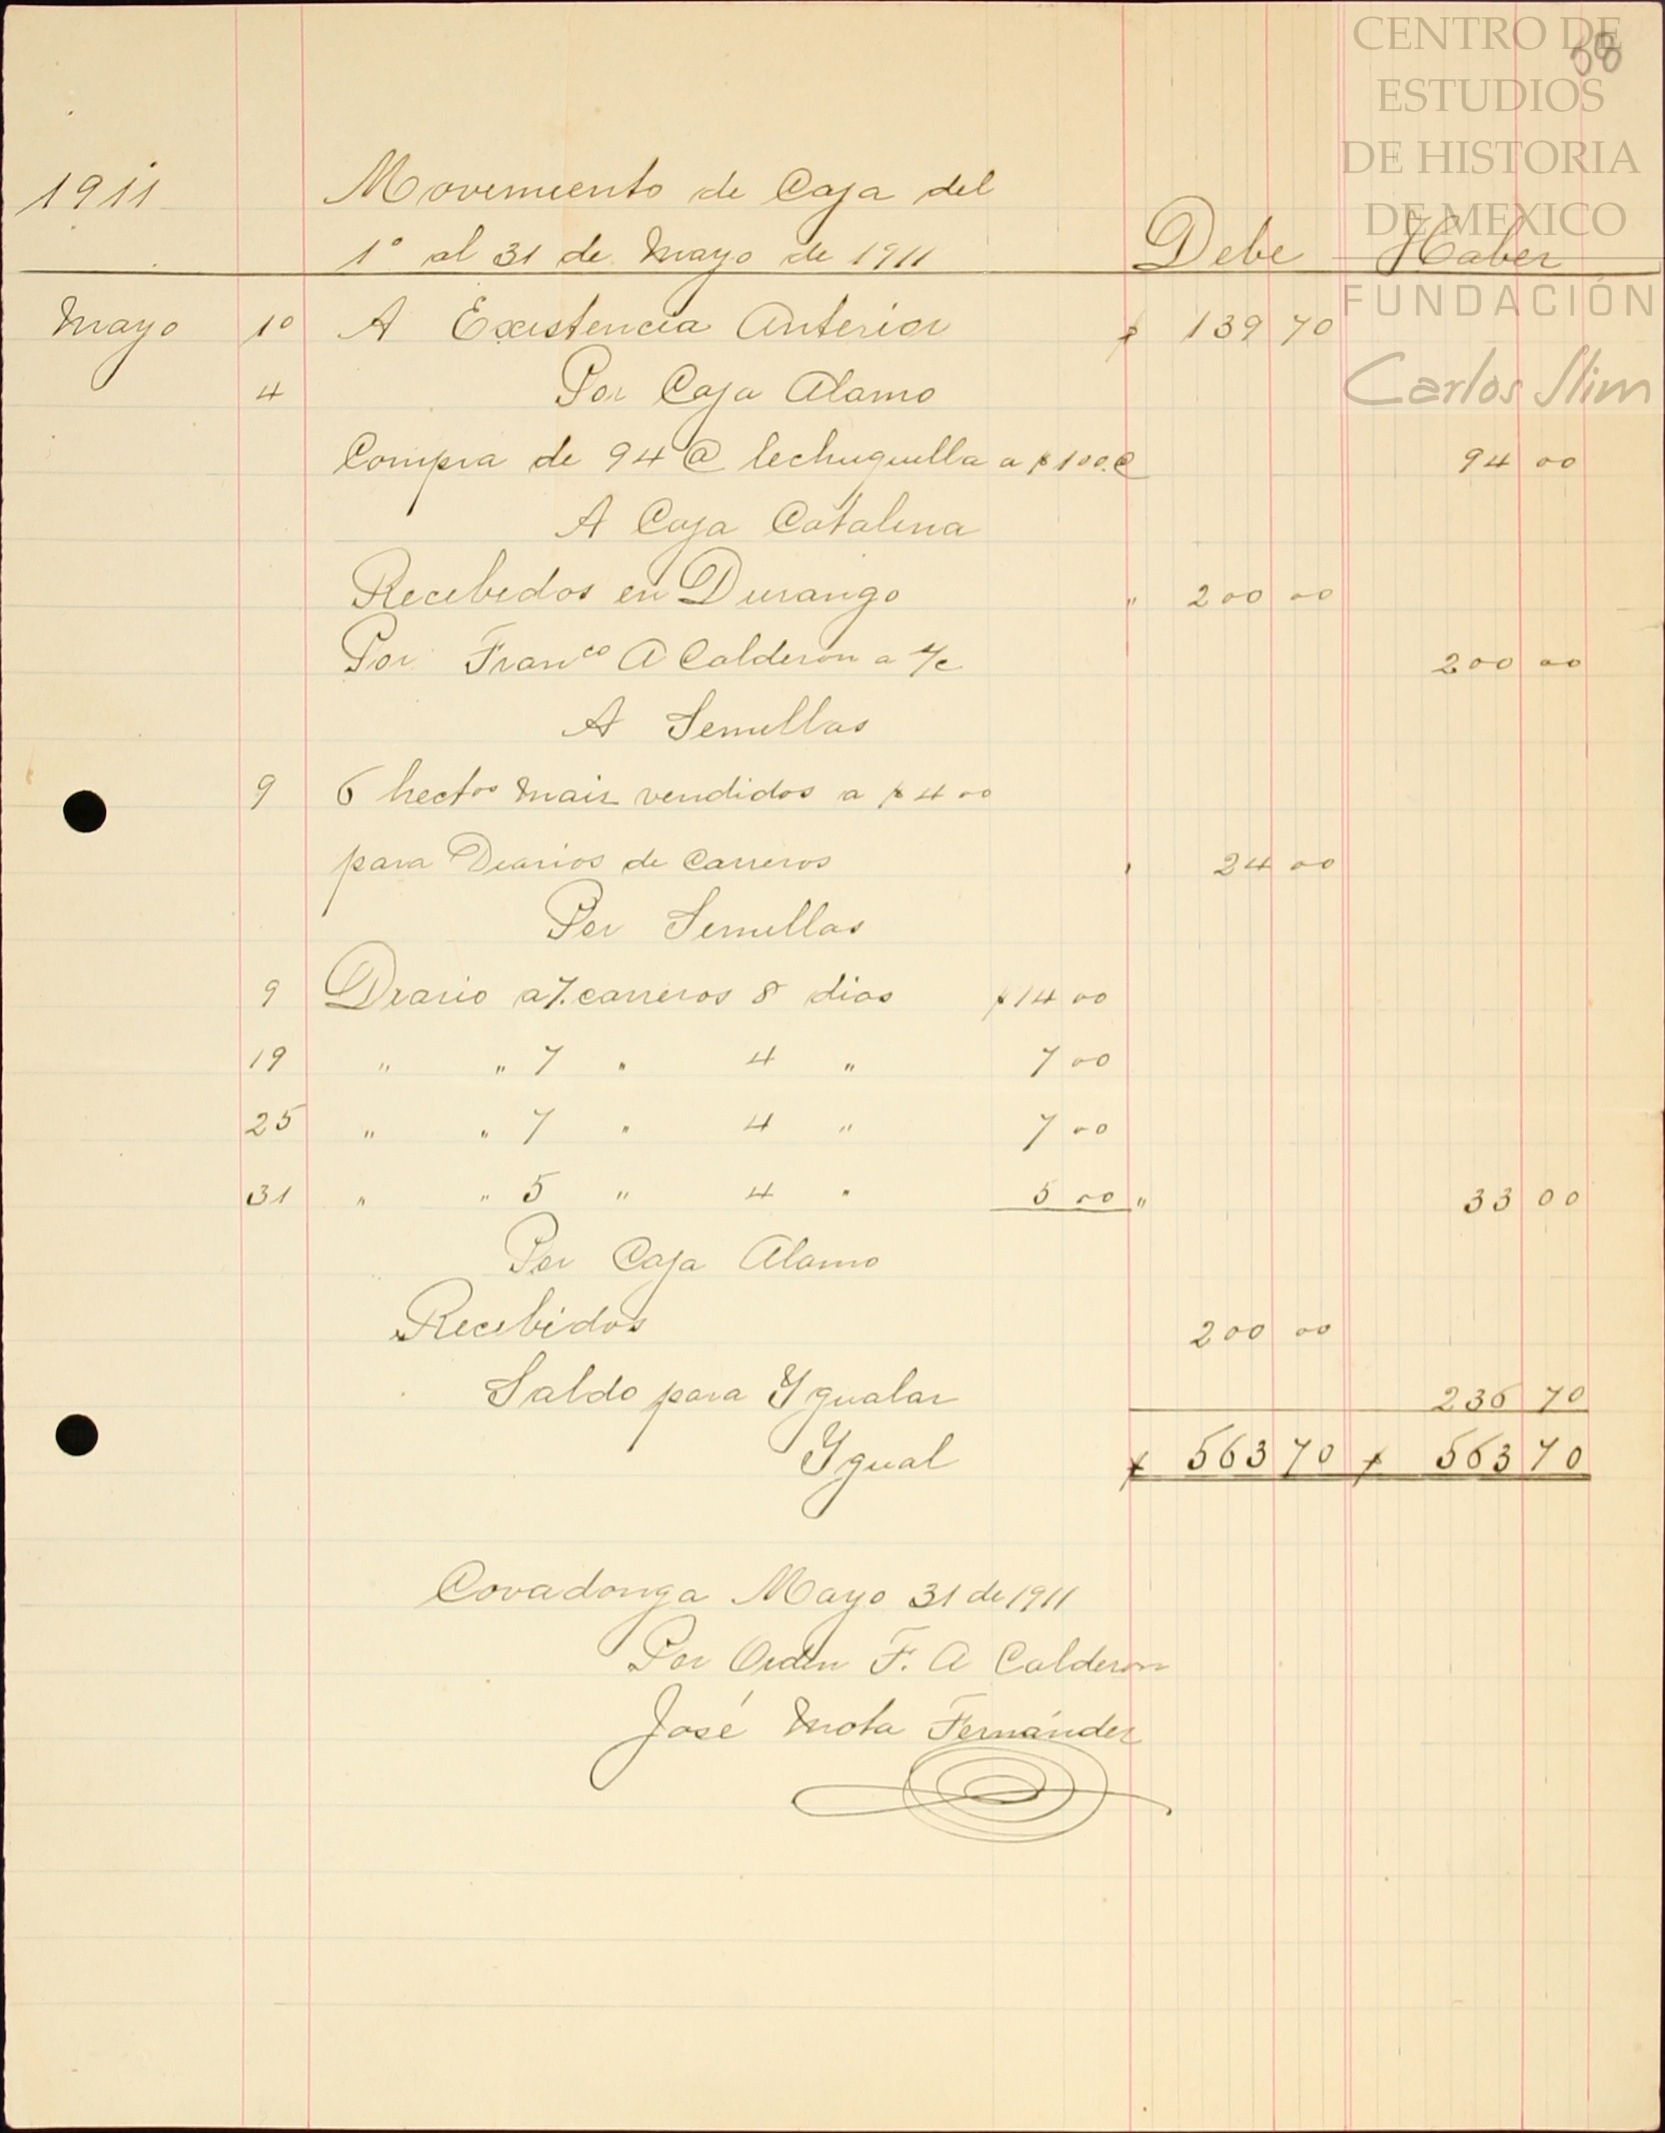 CENTRO DE
ESTUDIOS
DE HISTORIA
DE MEXICO
FUNDACIÓN
Carlos Slim
1911 Movimiento de Caja del
1º al 31 de Mayo de 1911 Debe Haber
Mayo 1º A Existencia Anterior $ 139 70
4 Por Caja Alamo
Compra de 94 @ lechuguilla a $ 1 00 @ 94 00
A Caja Catalina
Recibidos en Durango " 200 00
Por Franco A Calderon a m/c 200 00
A Semillas
9 6 hectos Maiz vendidos a $ 4 00
para Diarios de Carreros " 24 00
Por Semillas
9 Diario a 7. carreros 8 dias $ 14 00
19 " " 7 " 4 " 7 00
25 " " 7 " 4 " 7 00
31 " " 5 " 4 " 5 00 " 33 00
Por Caja Alamo
Recibidos 200 00
Saldo para Ygualar 236 70
Ygual $ 563 70 $ 563 70
Covadonga Mayo 31 de 1911
Por Orden F. A Calderon
José Mota Fernández